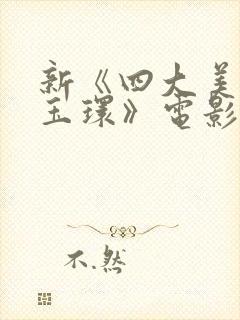 新《四大美
玉環》電影
不.然